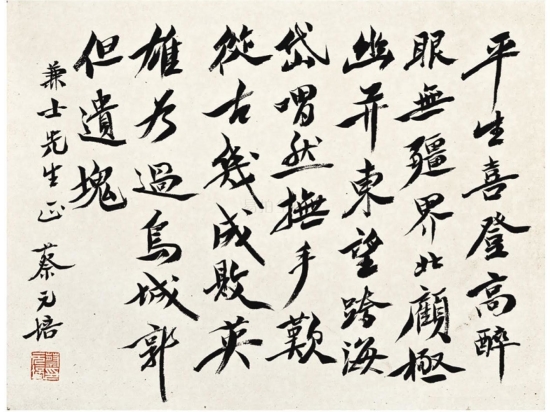 平生喜登高醉
眼無疆界北顧極
幽并東望跨海
岱喟然撫手歎
從古幾成敗英
雄為過鳥城郭
但遺塊
兼士先生正
蔡元培